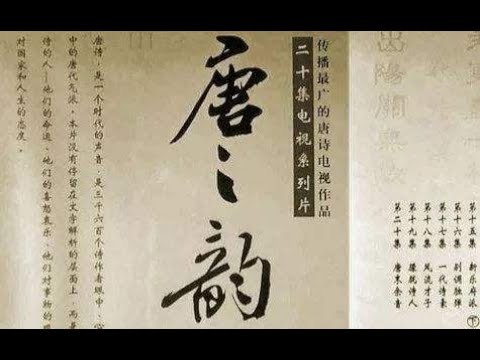 第十五集 新乐府派
第十六集 别调独弹
第十七集 一代诗豪
第十八集 风流才子
第十九集 朦胧诗人
第二十集 唐末余音
下
传播最广的唐诗电视作品
二十集电视系列片
唐之韵
唐诗，是一个时代的声音，是三千六百个诗作者眼中、心
中的唐代气派。本片没有停留在文字解析的层面上，而是
诗的人——他们的命运、他们的喜怒哀乐、他们对事物的
对国家和人生的态度。